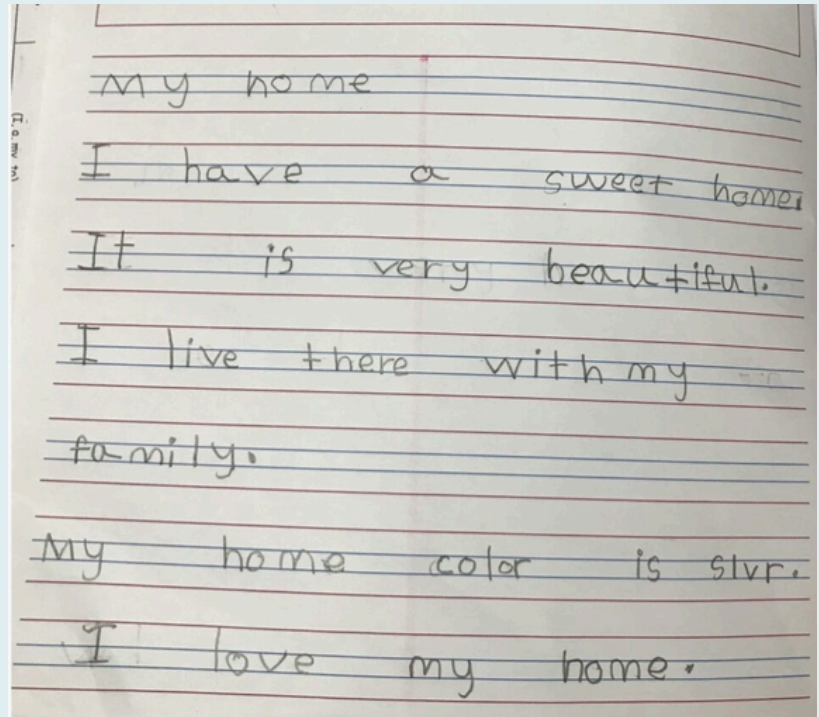 My home
I have a sweet home.
It is very beautiful.
I live there with my
family.
My home color is slvr.
I love my home.